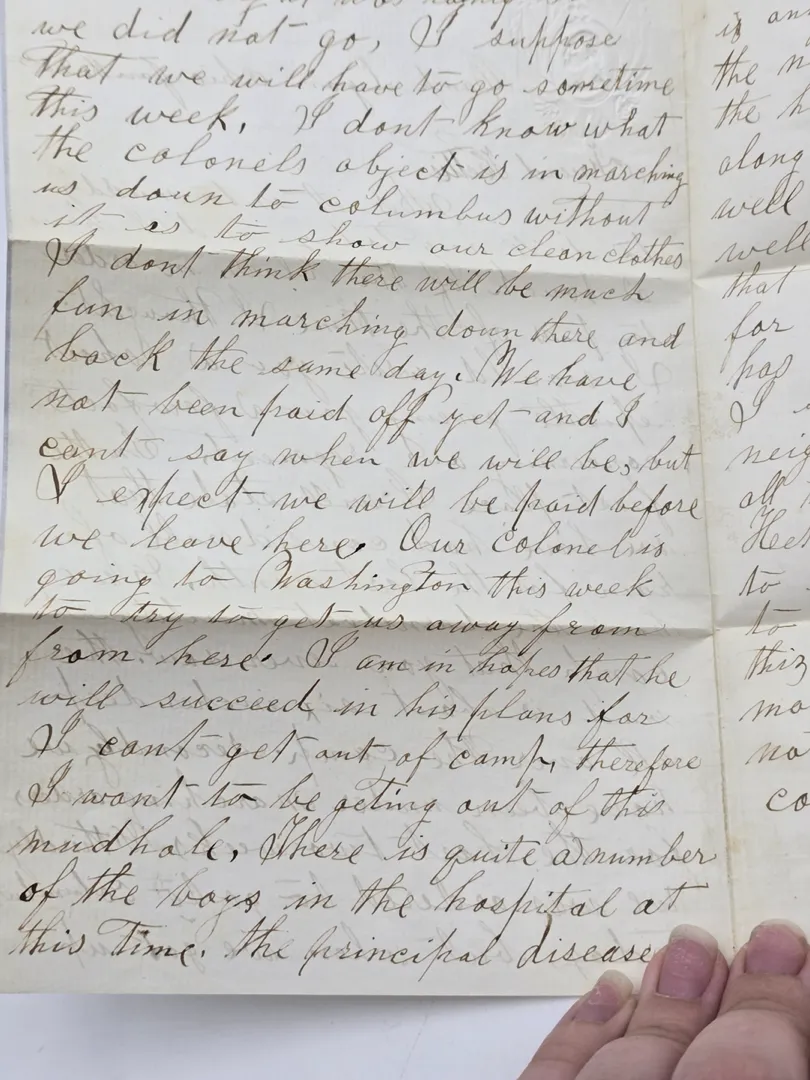 we did not go, I suppose
that we will have to go sometime
this week, I dont know what
the colonels object is in marching
us down to columbus without
it is to show our clean clothes
I dont think there will be much
fun in marching down there and
back the same day. We have
not been paid off yet and I
cant say when we will be, but
I expect we will be paid before
we leave here. Our colonel is
going to Washington this week
to try to get us away from
from here. I am in hopes that he
will succeed in his plans for
I cant get out of camp, therefore
I want to be geting out of this
mudhole, There is quite a number
of the boys in the hospital at
this Time. the principal disease
is
the
the
along
well
well
that
for
has
I
all
to
to